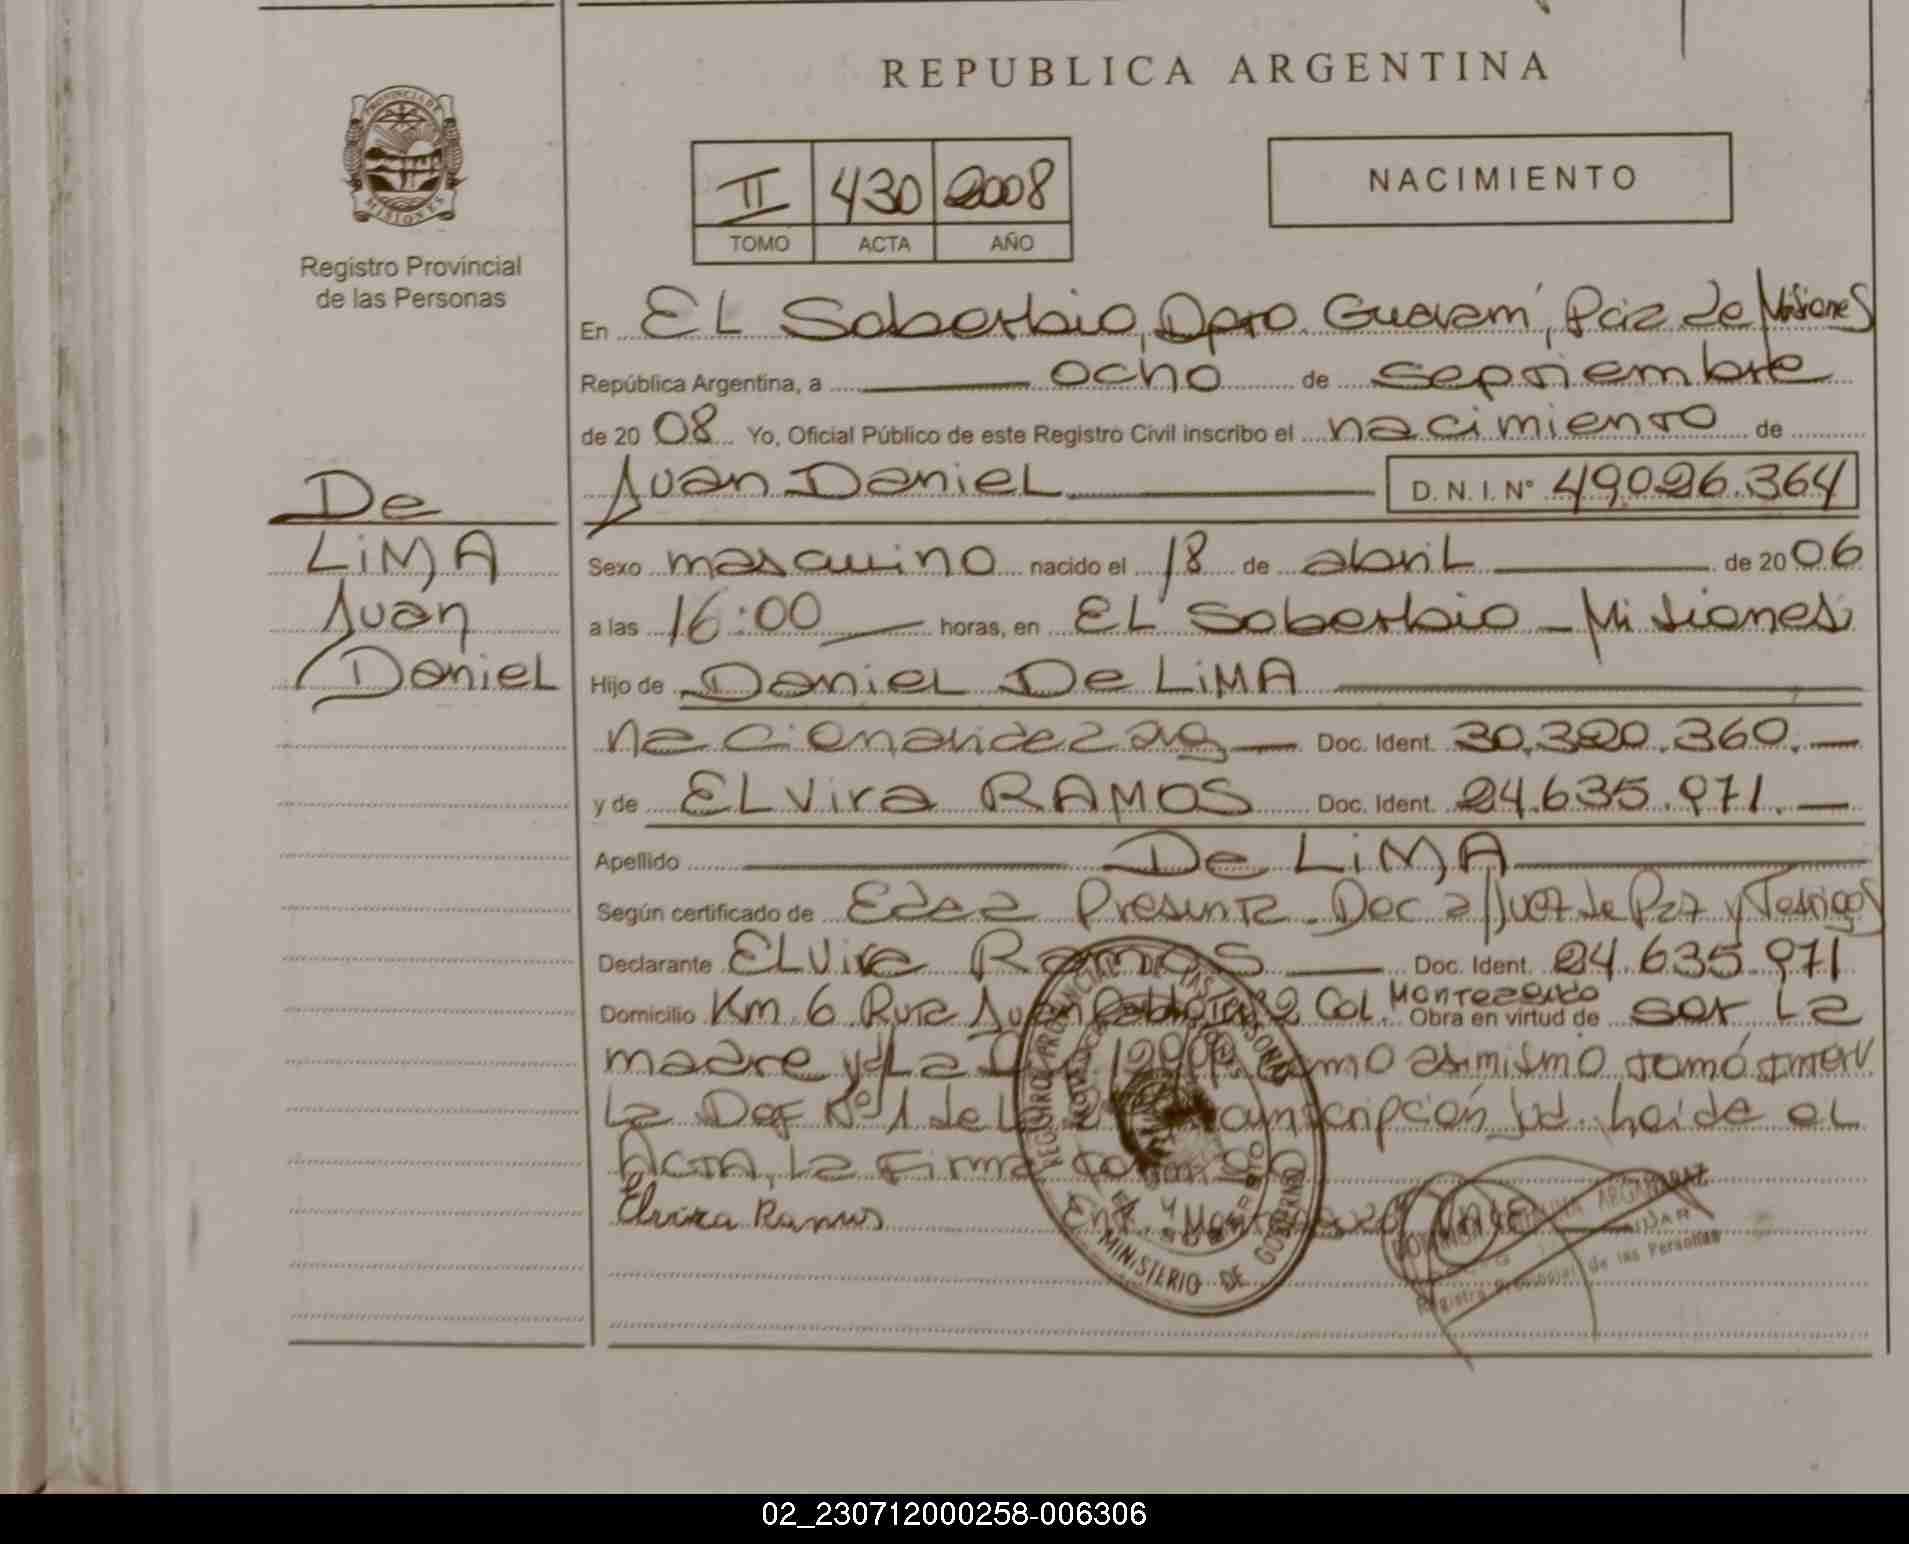 REPUBLICA ARGENTINA
PROVINCIA DE MISIONES
Registro Provincial
de las Personas
II 430 2008
TOMO ACTA AÑO
NACIMIENTO
En EL Soberbio, Dpto. Guaraní, Pcia de Misiones
República Argentina, a ocho de septiembre
de 2008 Yo, Oficial Público de este Registro Civil inscribo el nacimiento de
Juan Daniel D. N. I. N° 49.026.364
De
LiMA
Juan
Daniel
Sexo masculino nacido el 18 de abril de 2006
a las 16:00 horas, en EL Soberbio - Misiones
Hijo de Daniel De LiMA
Doc. Ident. 30.320.360.
y de ELvira RAMOS Doc. Ident. 24.635.971.
Apellido De LiMA
Según certificado de Edad Presunta. Doc a/Juez de Paz y Testigos
Declarante ELvira Ramos Doc. Ident. 24.635.971
Domicilio Km. 6 Ruta Juan Col. Monteagudo Obra en virtud de ser La
madre y como asimismo tomó interv.
La Def Nº 1 de transcripción leida el
ACTA, La firma
Elvira Ramos
REGISTRO PROVINCIAL DE LAS PERSONAS
MINISTERIO DE GOBIERNO
Registro Provincial de las Personas
02_230712000258-006306